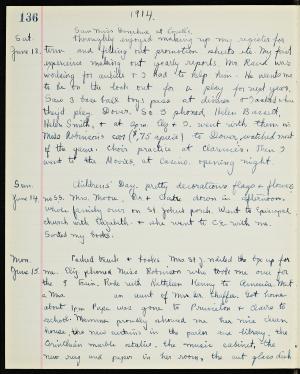 136
1914.
Saw Miss
Sat.
June 13.
Thoroughly enjoyed making up my register for
term and filling out promotion sheets etc. My first
experience making out yearly reports. Mr. Reed was
working for awhile & I had to help him. He wants me
to be on the look out for a play for next year.
Saw 3 base ball boys pass at dinner & I asked where
they'd play. Dover. So I phoned Helen Bassett,
Helen Smith, & at 2pm. & I went with them in
Miss Robinson's car ($.75 apiece) to Dover, watched most
of the game. Choir practice at Then I
went to the Movies, at Casino, opening night.
Sun.
June 14.
Childrens' Day. pretty decorations flags & flowers
Mrs. Moon, & down in afternoon.
Whole family over on St Johns porch. Went to Episcopal
church with Elizabeth & she went to C.E. with me.
Sorted my books.
Mon.
June 15.
Packed trunk & books. Mrs St J. rubbed the box up for
me. Miss Robinson who took me over for
the 9 Train. Rode with Kathleen Henny to
a Mrs an aunt of Got home
about 1pm Papa was gone to Princeton & Claire to
school. Mamma proudly showed me her nice clean
house, the new curtains in the parlor and library, the
Corinthian marble statue, the music cabinet, the
new rug and paper in her room, the cut glass dish